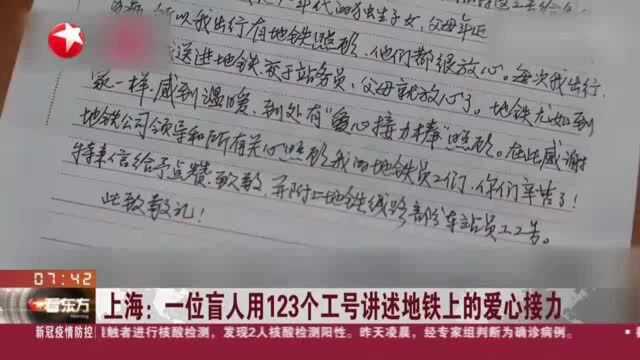 年代的独生子女,父母年近
所以我出行有地铁照顾,他们都很放心。每次我出行,
送进地铁交于站务员,父母就放心了。地铁尤如到
家一样,感到温暖,到处有“爱心接力棒”照顾。在此感谢
地铁公司领导和所有关心照顾我的地铁员工们,你们辛苦了!
特来信给予点赞、致敬,并附上地铁线路部份车站员工工号。
此致敬礼!
07:42
看东方
上海:一位盲人用123个工号讲述地铁上的爱心接力
新冠疫情防控
触者进行核酸检测,发现2人核酸检测阳性。昨天凌晨,经专家组判断为确诊病例。